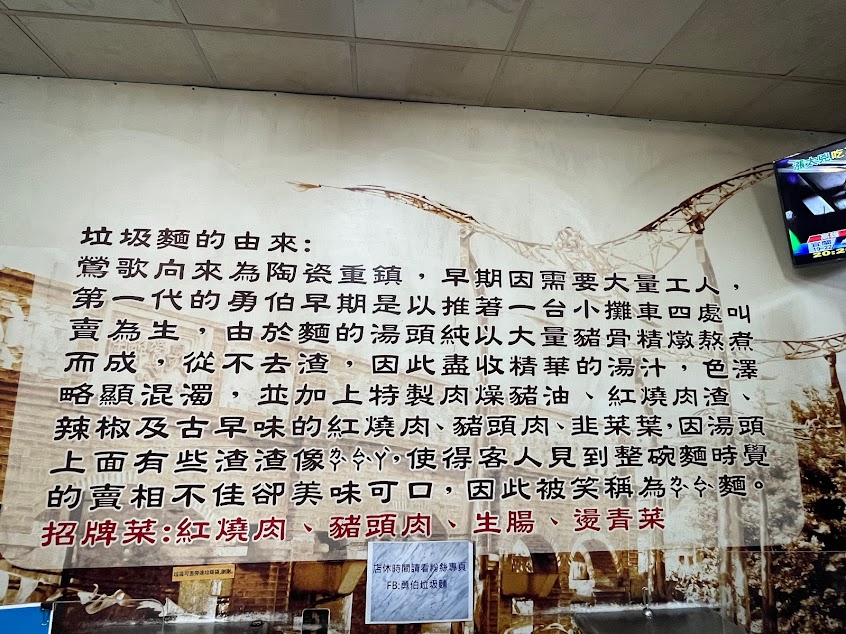 垃圾麵的由來:
鶯歌向來為陶瓷重鎮，早期因需要大量工人，
第一代的勇伯早期是以推著一台小攤車四處叫
賣為生，由於麵的湯頭純以大量豬骨精燉熬煮
而成，從不去渣，因此盡收精華的湯汁，色澤
略顯混濁，並加上特製肉燥豬油、紅燒肉渣、
辣椒及古早味的紅燒肉、豬頭肉、韭菜葉,因湯頭
上面有些渣渣像ㄆㄣㄚ,使得客人見到整碗麵時覺
的賣相不佳卻美味可口，因此被笑稱為ㄆㄣ麵。
招牌菜:紅燒肉、豬頭肉、生腸、燙青菜
店休時間請看粉絲專頁
FB:勇伯垃圾麵